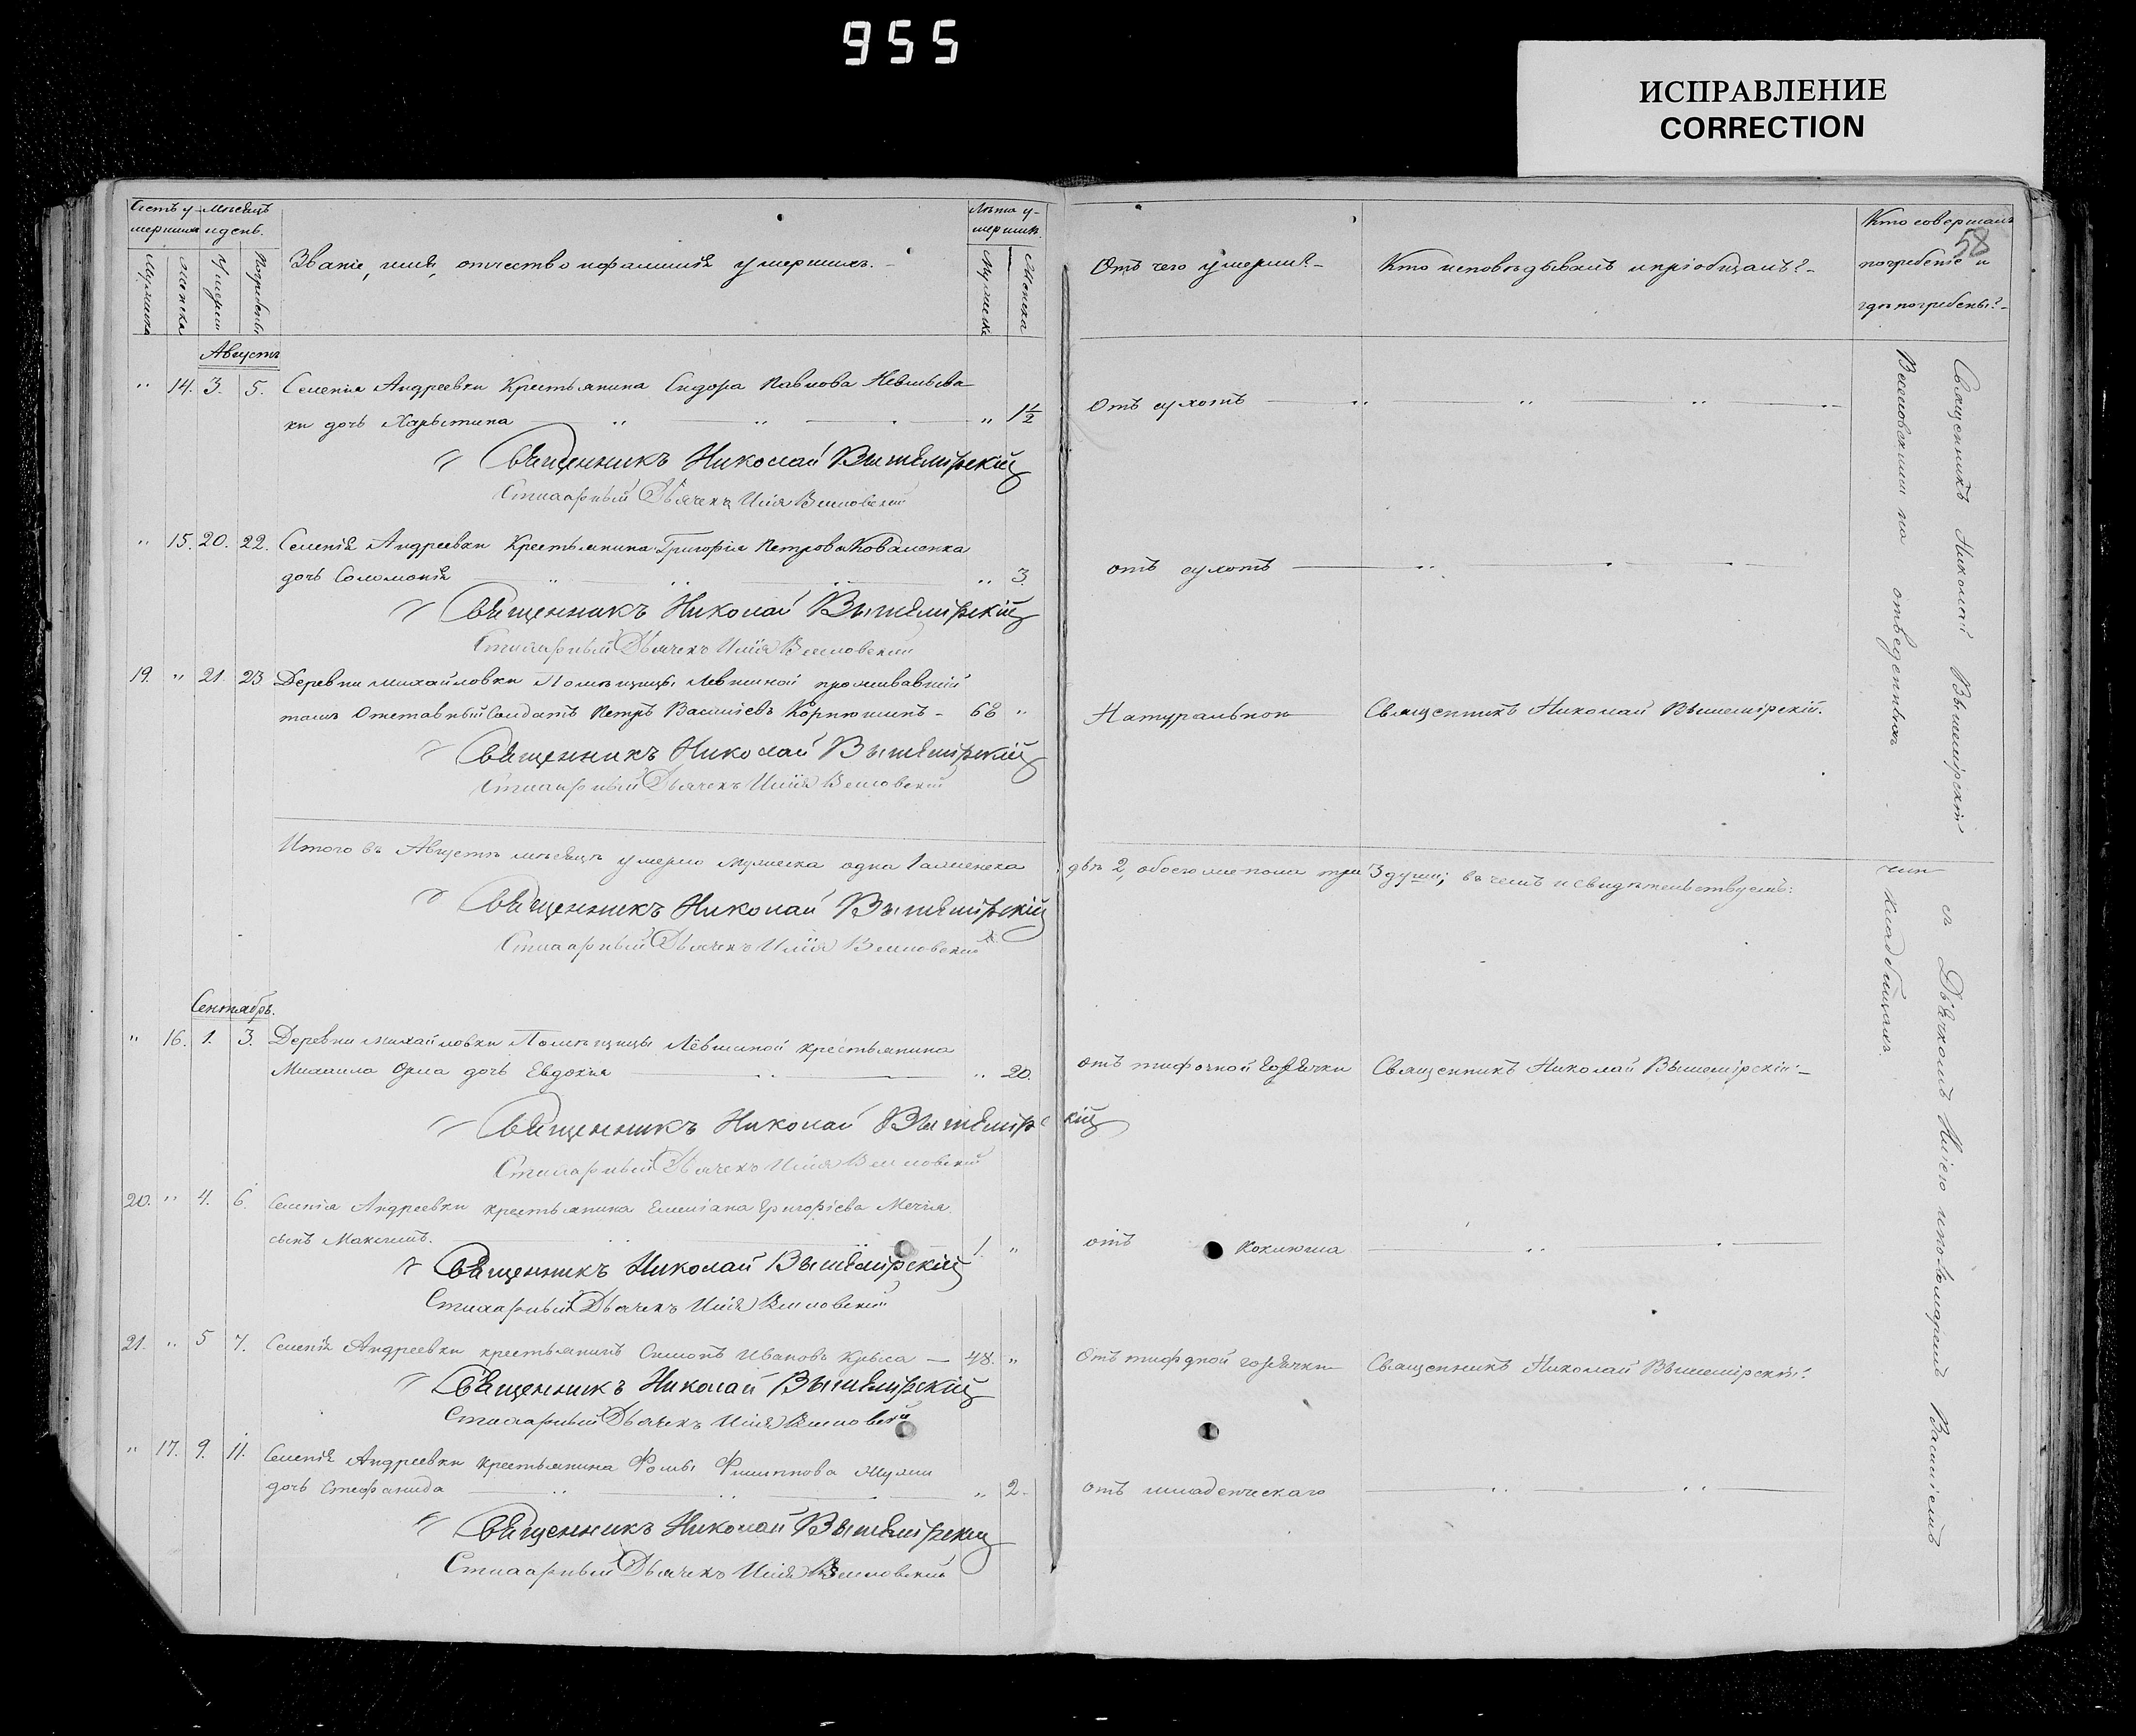 955
ИСПРАВЛЕНИЕ
CORRECTION
58
Счетъ у- мѣсяцъ
мершихъ и день.
Мужеска
Женска
Умерли
Погребены
Званіе, имя, отчество и фамилія умершихъ.
Лѣта у-
мершихъ.
Мужеска
Женска
Отъ чего умерли?
Кто исповѣдывалъ и пріобщалъ?
Кто совершалъ
погребеніе и
гдѣ погребены?
Августъ
" 14. 3. 5. Селенія Андреевки Крестьянина Сидора Павлова
ки дочь Харытина " 1½ Отъ сухотъ
Священникъ Николай Вышемірскій
Стихарный Дьячекъ Илія
" 15. 20. 22. Селенія Андреевки Крестьянина Григорія Петрова Коваленка
дочь Соломонія " 3. отъ сухотъ
Священникъ Николай Вышемірскій
Стихарный Дьячекъ Илія
19. " 21. 23 Деревни Михайловки Помѣщицы Левшиной проживавшій
тамъ Отставный Солдатъ Петръ Василіевъ Корнюшинъ - 68 " Натуральною Священникъ Николай Вышемірскій.
Священникъ Николай Вышемірскій
Стихарный Дьячекъ Илія
Итого въ Августѣ мѣсяцѣ умерло Мужеска одна 1 а женска двѣ 2, обоего же пола три 3 души; въ чемъ и свидѣтельствуемъ:
Священникъ Николай Вышемірскій
Стихарный Дьячекъ Илія
Сентябрь.
" 16. 1. 3. Деревни Михайловки Помѣщицы Лёвшиной крестьянина
Михаила Орла дочь Евдокія " 20. отъ тифочной горячки Священникъ Николай Вышемірскій
Священникъ Николай Вышемірскій
Стихарный Дьячекъ Илія
20. " 4. 6. Селенія Андреевки крестьянина Емеліана Григоріева
сынъ Максимъ. 1. " отъ коклюша
Священникъ Николай Вышемірскій
Стихарный Дьячекъ Илія
21. " 5 7. Селенія Андреевки крестьянинъ Симонъ Ивановъ Крыса — 48. " Отъ тифдной горячки Священникъ Николай Вышемірскій
Священникъ Николай Вышемірскій
Стихарный Дьячекъ Илія
" 17. 9. 11. Селенія Андреевки крестьянина Фомы Филиппова
дочь Стефанида " 2. отъ младенческаго
Священникъ Николай Вышемірскій
Стихарный Дьячекъ Илія
Священникъ Николай Вышемірскій съ Дьячкомъ Иліею и пономаремъ Василіемъ
на отведенныхъ кладбищахъ